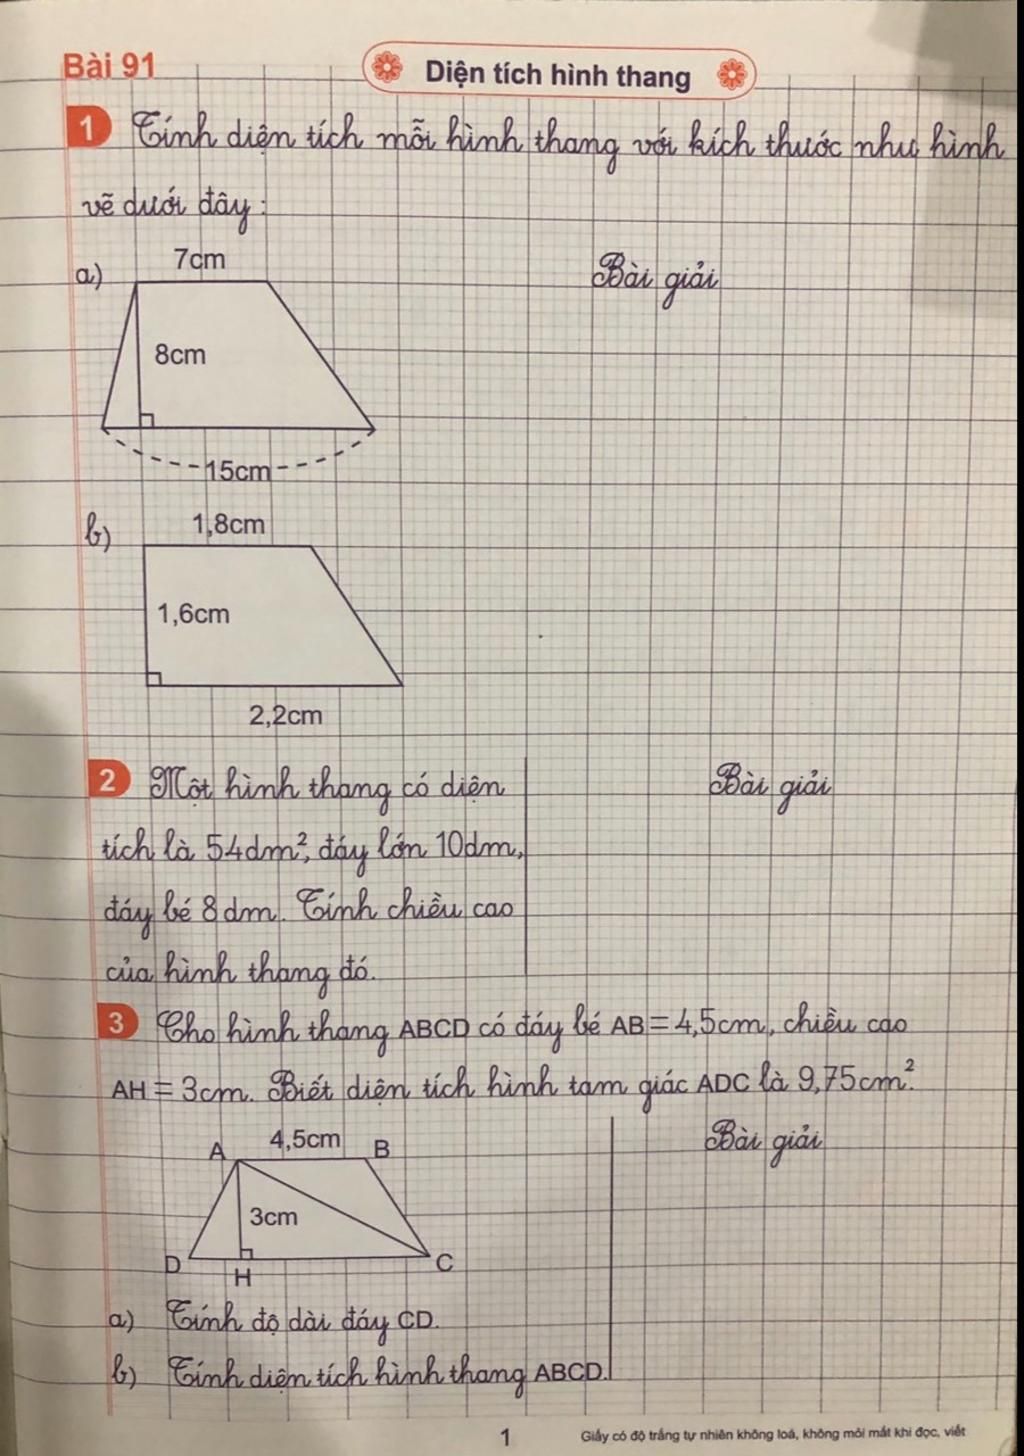 Bài 91
Diện tích hình thang
1 Tính diện tích mỗi hình thang với kích thước như hình
vẽ dưới đây:
a)
7cm
Bài giải
8cm
15cm
b)
1,8cm
1,6cm
2,2cm
2 Một hình thang có diện
Bài giải
tích là 54dm², đáy lớn 10dm,
đáy bé 8dm. Tính chiều cao
của hình thang đó.
3 Cho hình thang ABCD có đáy bé AB = 4,5cm, chiều cao
AH = 3cm. Biết diện tích hình tam giác ADC là 9,75cm².
Bài giải
A 4,5cm B
3cm
D H C
a) Tính độ dài đáy CD.
b) Tính diện tích hình thang ABCD.
1
Giấy có độ trắng tự nhiên không loá, không mỏi mắt khi đọc, viết